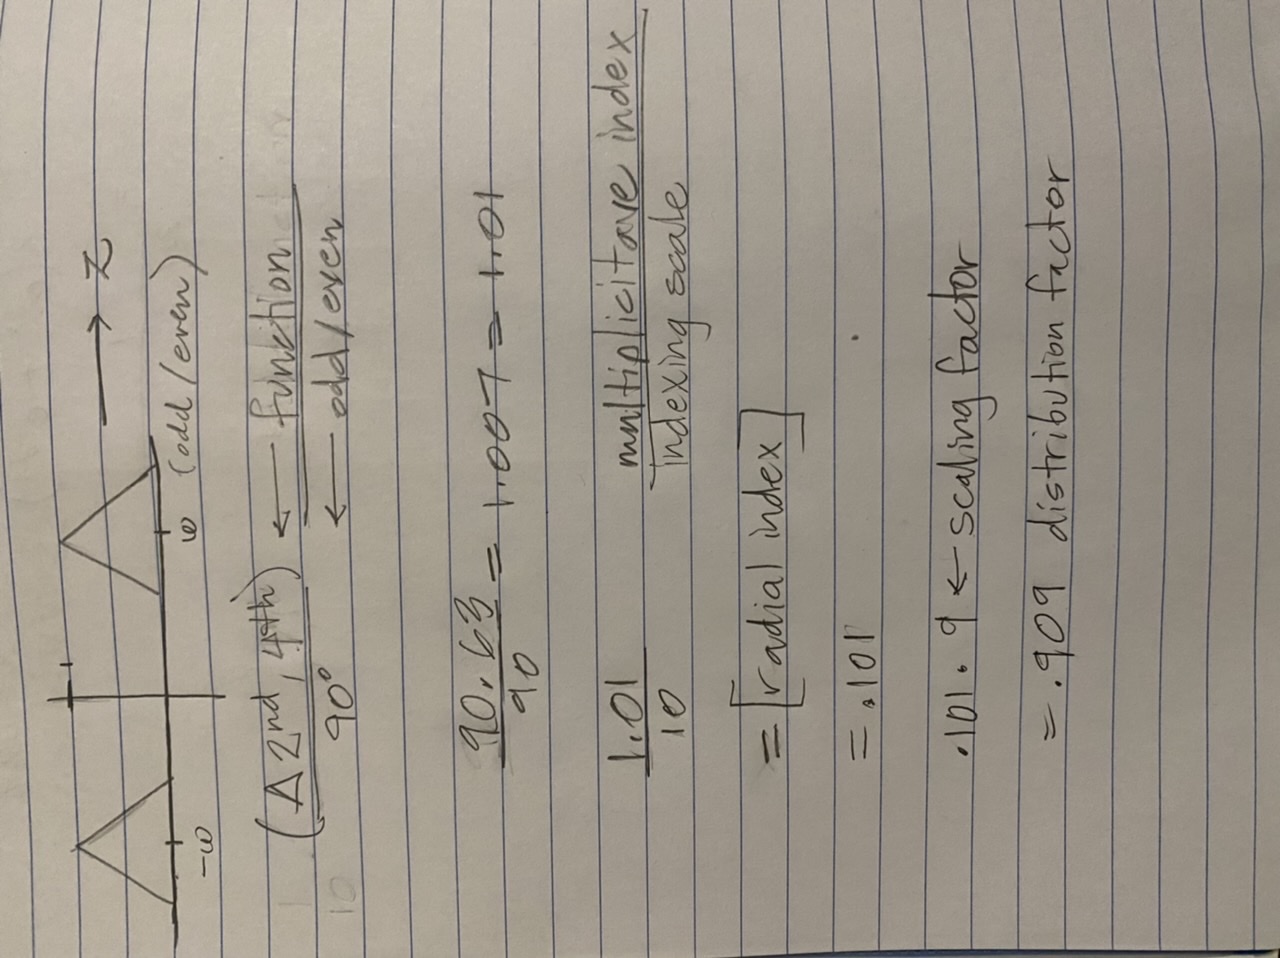 → Z
-ω ω (odd/even)
(Δ 2nd, 4th) ← function
90° ← odd/even
10
90.63 / 90 = 1.007 = 1.01
1.01 / 10 multiplicitave index / indexing scale
= [radial index]
= .101
.101 . 9 ← scaling factor
= .909 distribution factor